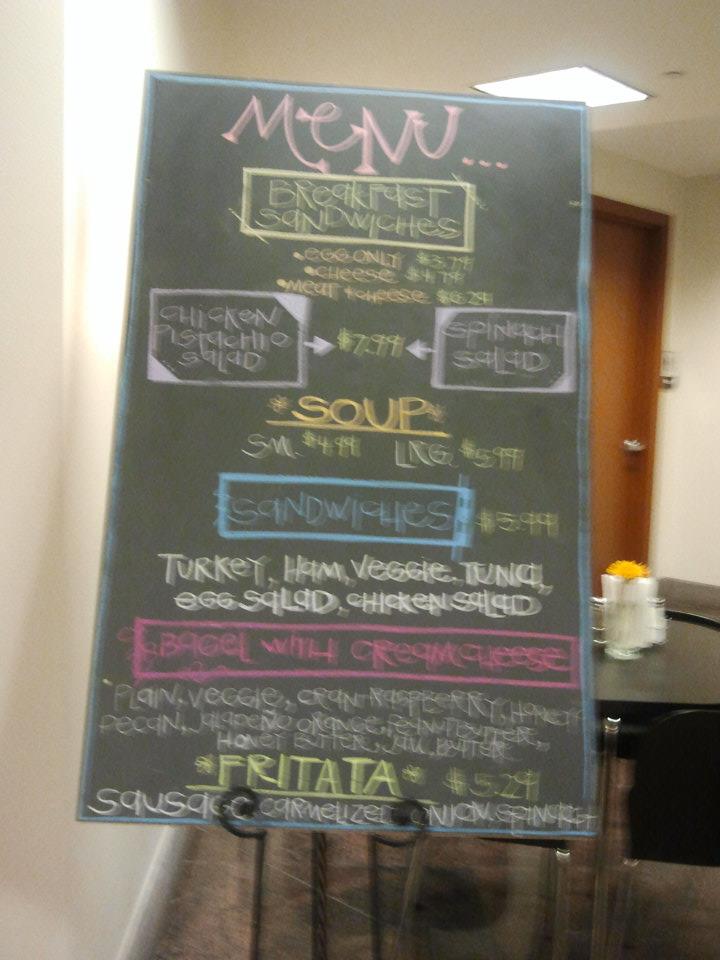 MENU...
BREAKFAST
SANDWICHES
•EGG ONLY $3.79
•CHEESE $4.79
•MEAT + CHEESE $6.29
CHICKEN
PISTACHIO
SALAD
$7.99
SPINACH
SALAD
*SOUP*
SM. $4.99 LRG. $5.99
SANDWICHES $5.99
TURKEY, HAM, VEGGIE, TUNA,
EGG SALAD, CHICKEN SALAD
BAGEL WITH CREAM CHEESE
PLAIN, VEGGIE, CRAN-RASPBERRY, HONEY
PECAN, JALAPEÑO ORANGE, PEANUT BUTTER,
HONEY BUTTER, JAM, BUTTER
*FRITATA* $5.29
SAUSAGE CARMELIZED ONION, SPINACH